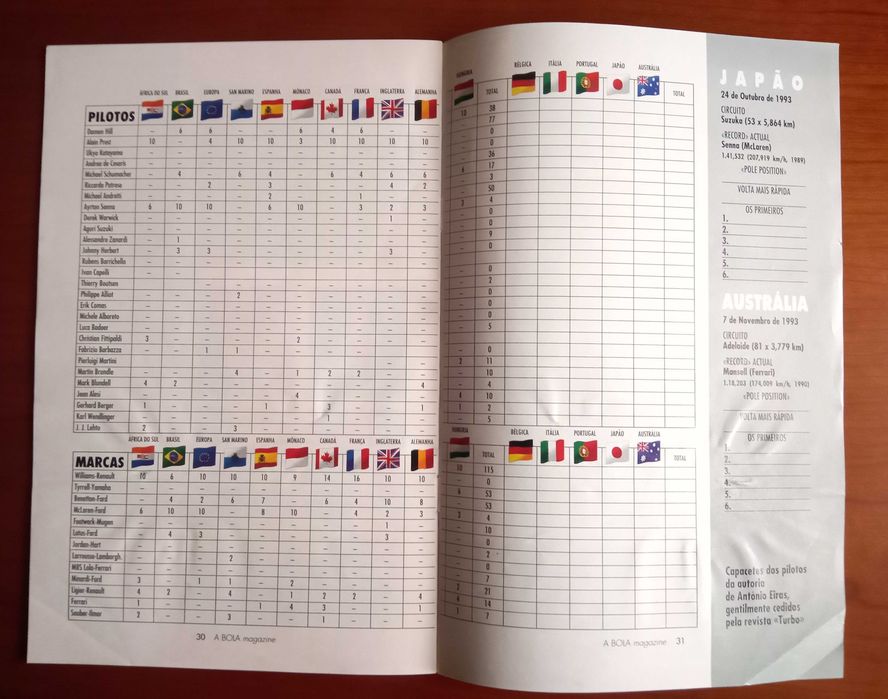 ÁFRICA DO SUL BRASIL EUROPA SAN MARINO ESPANHA MÓNACO CANADÁ FRANÇA INGLATERRA ALEMANHA
PILOTOS
Damon Hill – 6 6 – – 6 4 6 – –
Alain Prost 10 – 4 10 10 3 10 10 10 10
Ukyo Katayama – – – – – – – – – –
Andrea de Cesaris – – – – – – – – – –
Michael Schumacher – 4 – 6 4 – 6 4 6 6
Riccardo Patrese – – 2 – 3 – – – 4 2
Michael Andretti – – – – 2 – – 1 – –
Ayrton Senna 6 10 10 – 6 10 – 3 2 3
Derek Warwick – – – – – – – – 1 –
Aguri Suzuki – – – – – – – – – –
Alessandro Zanardi – 1 – – – – – – – –
Johnny Herbert – 3 3 – – – – – 3 –
Rubens Barrichello – – – – – – – – – –
Ivan Capelli – –
Thierry Boutsen – – – – – – – –
Philippe Alliot – – – 2 – – – – – –
Erik Comas – – – – – – – – – –
Michele Alboreto – – – – – – – – – –
Luca Badoer – – – – – – – – – –
Christian Fittipaldi 3 – – – – 2 – – – –
Fabrizio Barbazza – – 1 1 – – – – – –
Pierluigi Martini
Martin Brundle – – – 4 – 1 2 2 – –
Mark Blundell 4 2 – – – – – – – 4
Jean Alesi – – – – – 4 – – – –
Gerhard Berger 1 – – – 1 – 3 – – 1
Karl Wendlinger – – – – – – 1 – – –
J. J. Lehto 2 – – 3 – – – – – –
ÁFRICA DO SUL BRASIL EUROPA SAN MARINO ESPANHA MÓNACO CANADÁ FRANÇA INGLATERRA ALEMANHA
MARCAS
Williams-Renault 10 6 10 10 10 9 14 16 10 10
Tyrrell-Yamaha – – – – – – – – – –
Benetton-Ford – 4 2 6 7 – 6 4 10 8
McLaren-Ford 6 10 10 – 8 10 – 4 2 3
Footwork-Mugen – – – – – – – – 1 –
Lotus-Ford – 4 3 – – – – – 3 –
Jordan-Hart – – – – – – – – – –
Larrousse-Lamborgh. – – – 2 – – – – – –
MRS Lola-Ferrari – – – – – – – – – –
Minardi-Ford 3 – 1 1 – 2 – – – –
Ligier-Renault 4 2 – 4 – 1 2 2 – 4
Ferrari 1 – – – 1 4 3 – – 1
Sauber-Ilmor 2 – – 3 – – 1 – – –
30 A BOLA magazine
HUNGRIA TOTAL BÉLGICA ITÁLIA PORTUGAL JAPÃO AUSTRÁLIA TOTAL
10 38
77
0
0
36
6 17
3
50
3 4
0
0
0
9
0
0
2
0
0
0
5
0
2 11
10
4 4
10
1 2
5
HUNGRIA TOTAL BÉLGICA ITÁLIA PORTUGAL JAPÃO AUSTRÁLIA TOTAL
10 115
– 0
6 53
– 53
3 4
10
0
2
0
7
21
14
7
A BOLA magazine 31
JAPÃO
24 de Outubro de 1993
CIRCUITO
Suzuka (53 x 5,864 km)
«RECORD» ACTUAL
Senna (McLaren)
1.41,532 (207,919 km/h, 1989)
«POLE POSITION»
VOLTA MAIS RÁPIDA
OS PRIMEIROS
1.
2.
3.
4.
5.
6.
AUSTRÁLIA
7 de Novembro de 1993
CIRCUITO
Adelaide (81 x 3,779 km)
«RECORD» ACTUAL
Mansell (Ferrari)
1.18,203 (174,009 km/h, 1990)
«POLE POSITION»
VOLTA MAIS RÁPIDA
OS PRIMEIROS
1.
2.
3.
4.
5.
6.
Capacetes dos pilotos
da autoria
de António Eiras,
gentilmente cedidos
pela revista «Turbo»